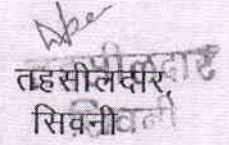 तहसीलदार
तहसीलदार,
सिवनी
सिवनी